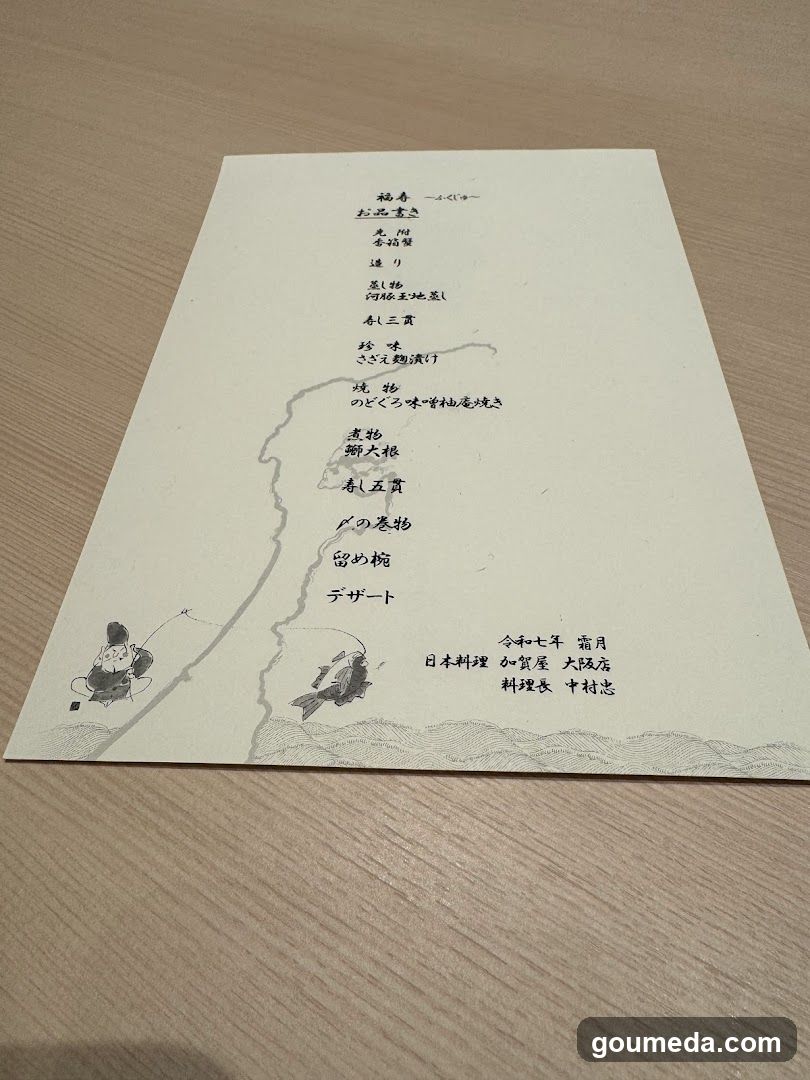 福寿 ～ふくじゅ～
お品書き
先 附
香箱蟹
造 り
蒸し物
河豚玉地蒸し
寿し三貫
珍 味
さざえ麹漬け
焼 物
のどぐろ味噌柚庵焼き
煮物
鰤大根
寿し五貫
〆の巻物
留め椀
デザート
令和七年 霜月
日本料理 加賀屋 大阪店
料理長 中村忠
goumeda.com